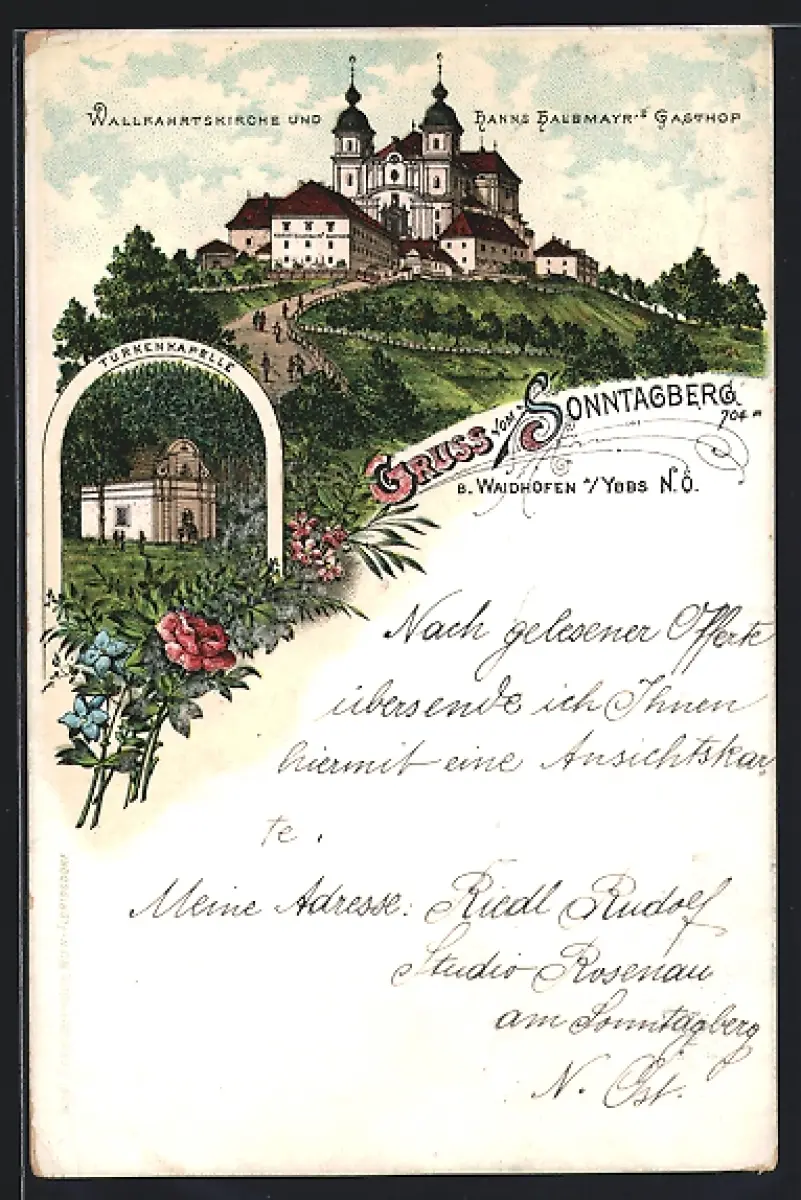 WALLFAHRTSKIRCHE UND HANNS HALBMAYR'S GASTHOF
TÜRKENKAPELLE
GRUSS VOM SONNTAGBERG.
704 m
B. WAIDHOFEN a/YBBS N.Ö.
Nach gelesener Offerte
übersende ich Ihnen
hiermit eine Ansichtskar
te.
Meine Adresse: Riedl Rudolf
Studio Rosenau
am Sonntagberg
N. Öst.